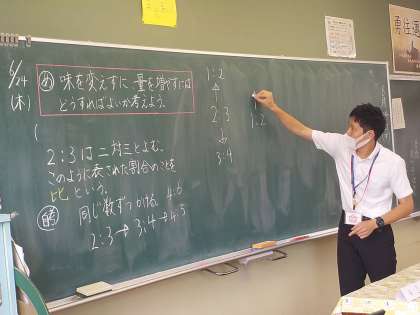 6/24
(木)
め 味を変えずに、量を増やすには
どうすればよいか考えよう。
2:3は二対三とよむ。
このように表された割合のことを
比という。
同じ数ずつかける。 4:6
2:3→3:4→4:5
1:2
↑
2:3
↓
3:4
1:2